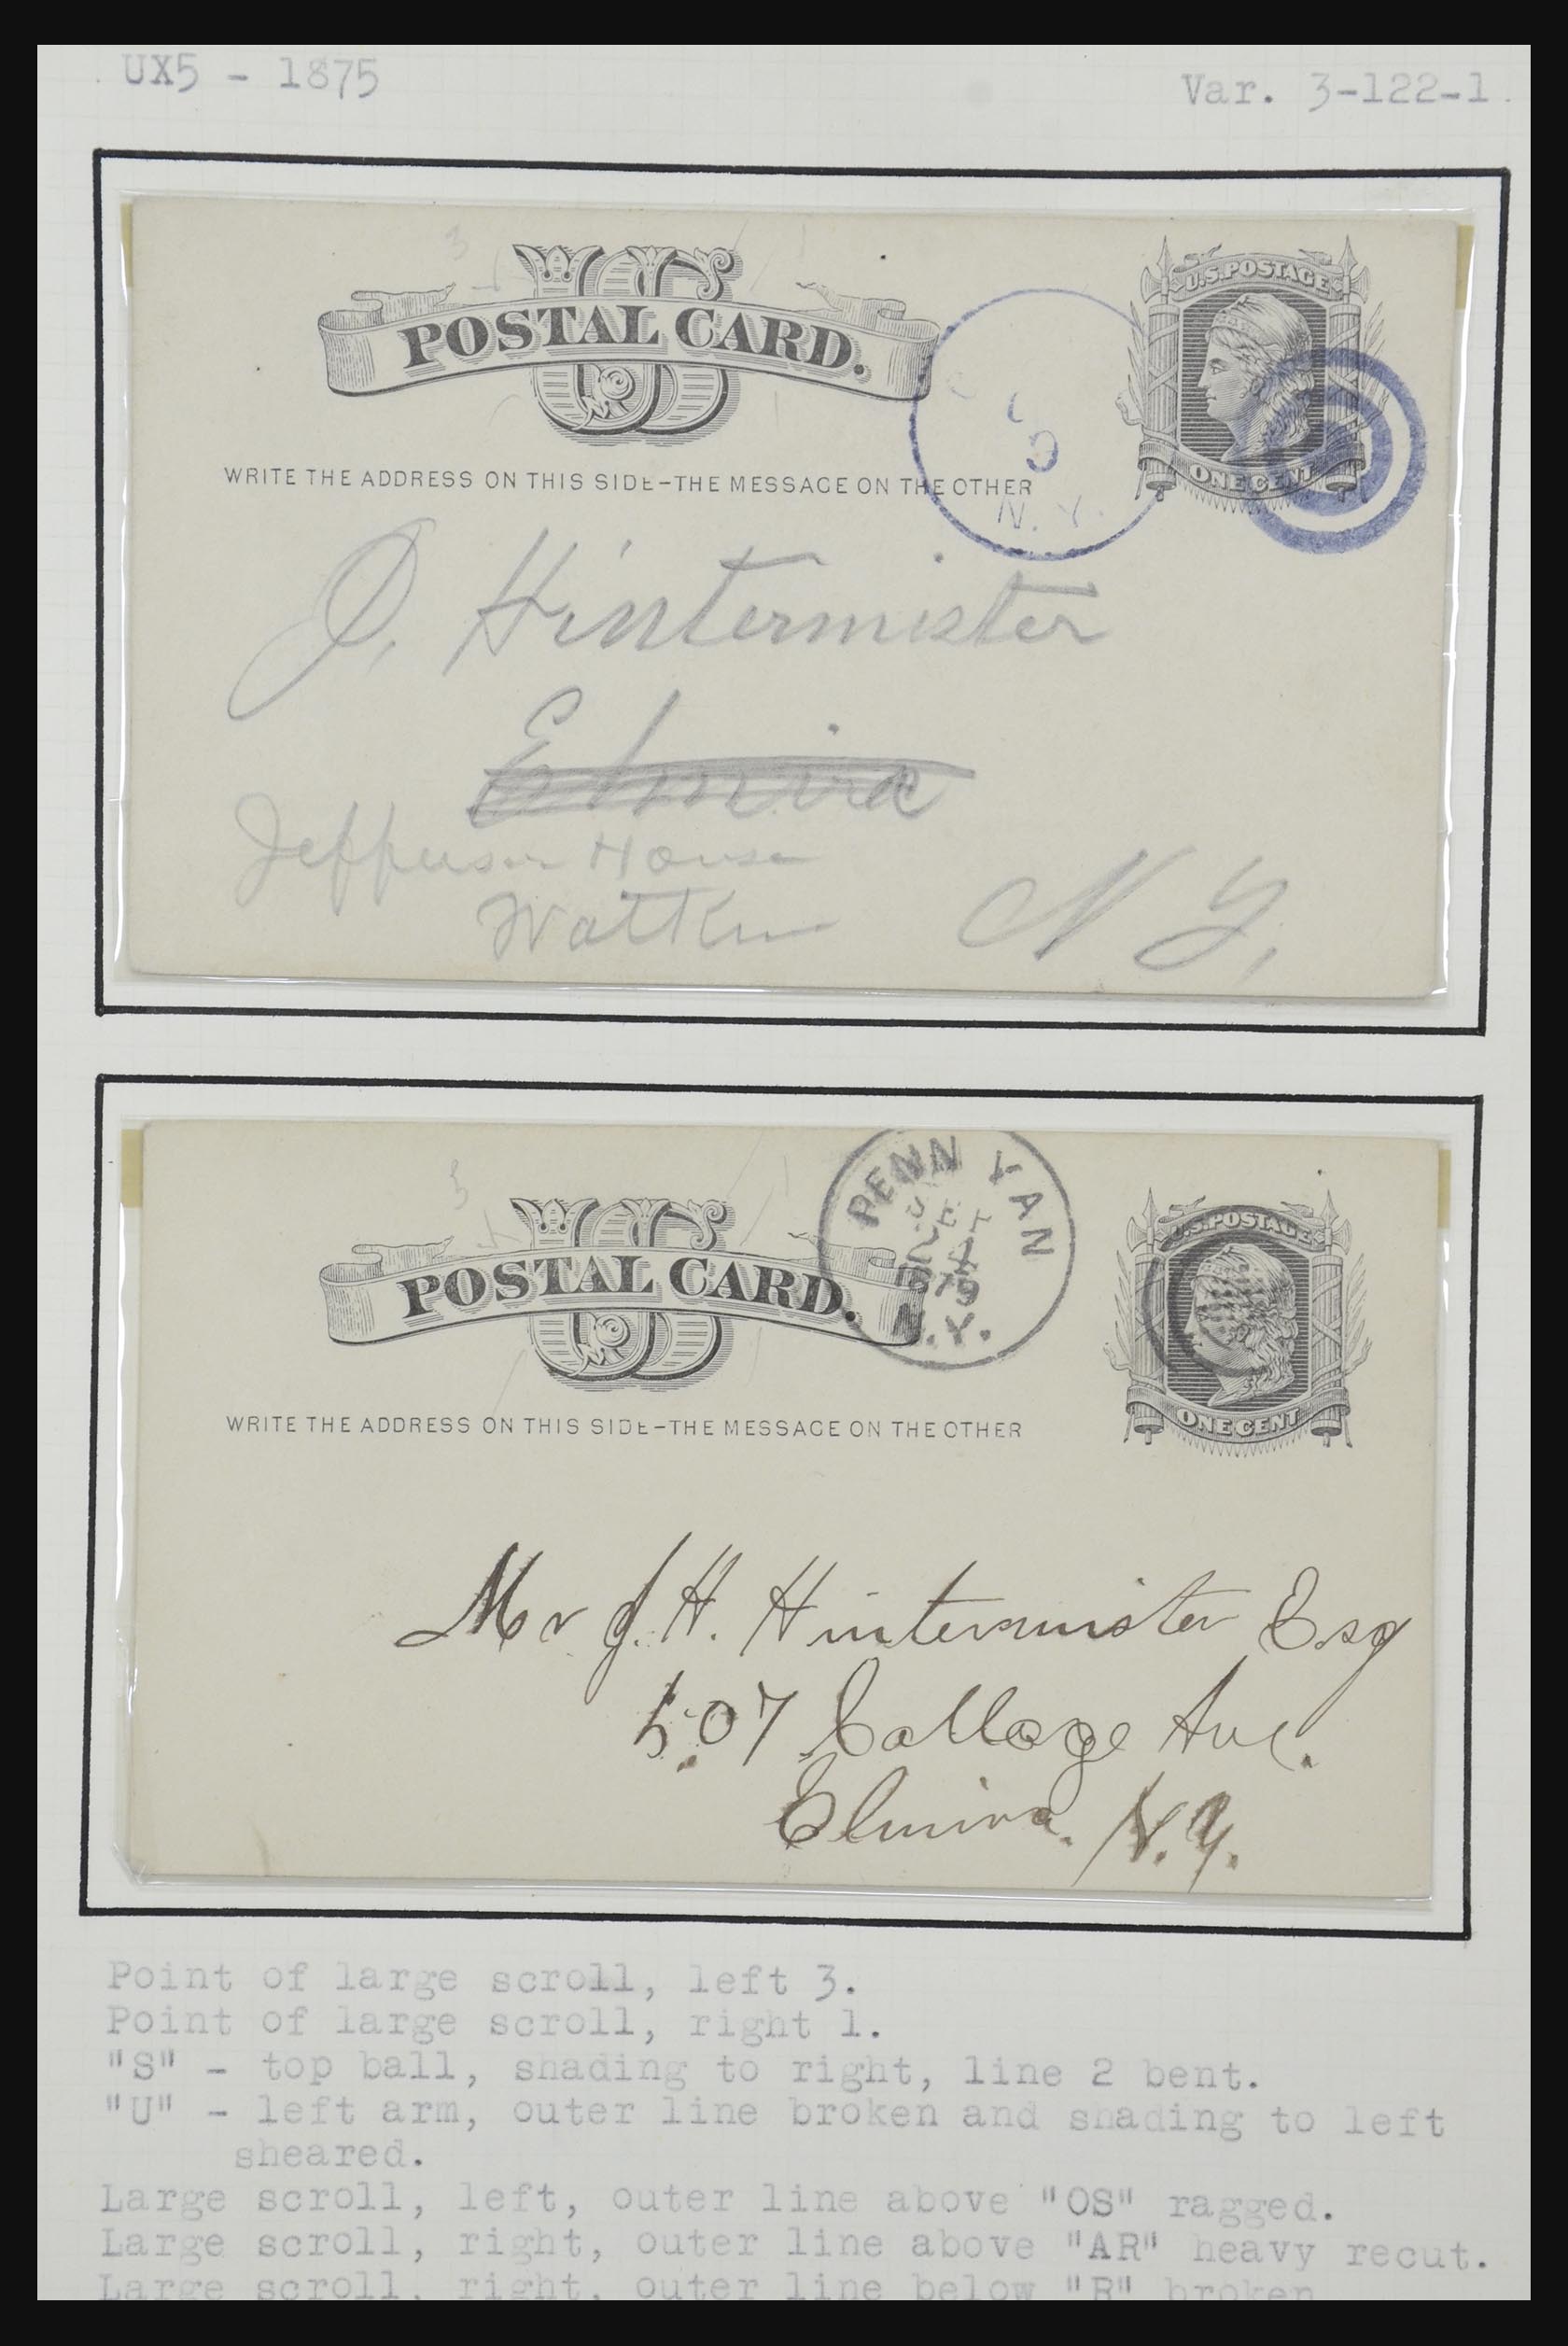 UX5 - 1875
Var. 3-122-1.
3
1
US
POSTAL CARD.
U.S. POSTAGE
ONE CENT
WRITE THE ADDRESS ON THIS SIDE-THE MESSAGE ON THE OTHER
N. Y.
J. Hintermister
Elmira
Jefferson House
Watkins N Y,
3
1
US
POSTAL CARD.
PENN YAN
79
N.Y.
U.S. POSTAGE
ONE CENT
WRITE THE ADDRESS ON THIS SIDE-THE MESSAGE ON THE OTHER
Mr J. H. Hinterminster Esq
507 Collage Ave.
Elmira. N.Y.
Point of large scroll, left 3.
Point of large scroll, right 1.
"S" - top ball, shading to right, line 2 bent.
"U" - left arm, outer line broken and shading to left
sheared.
Large scroll, left, outer line above "OS" ragged.
Large scroll, right, outer line above "AR" heavy recut.
Large scroll, right, outer line below "R" broken